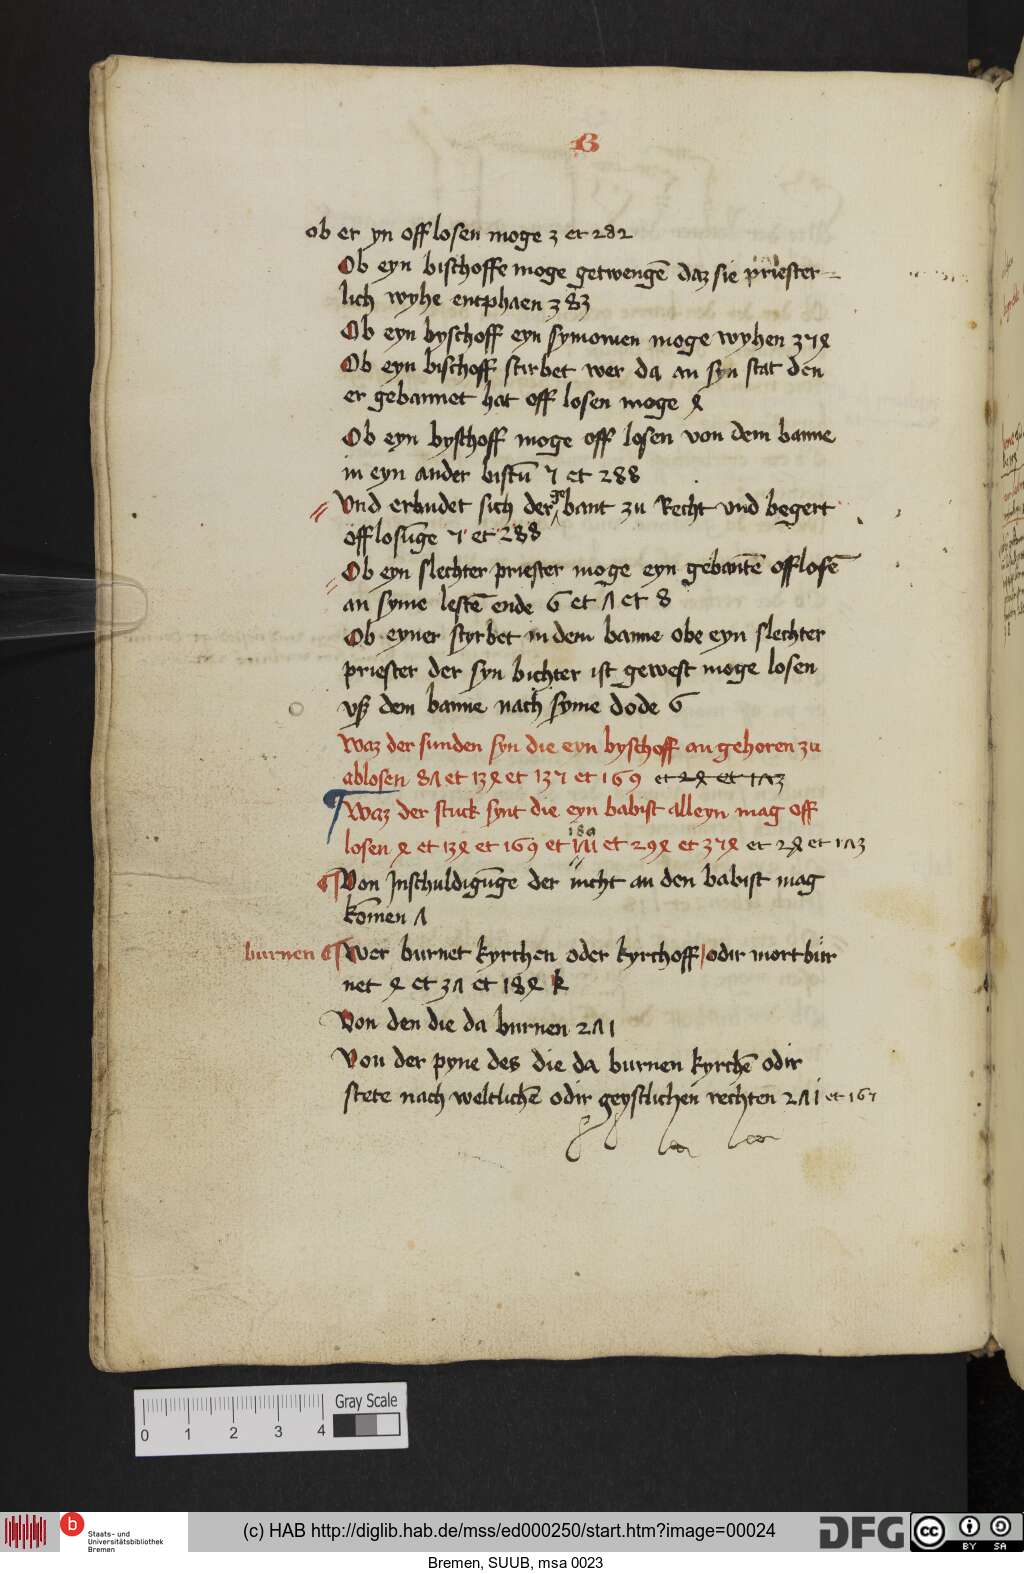 B
ob er yn offlosen moge 3 et 282
Ob eyn bischoffe moge getwengē daz sie priester-
lich wyhe entphaen 383
Ob eyn byschoff eyn symonien moge wyhen 374
Ob eyn bischoff stirbet wer da an syn stat den
er gebannet hat off losen moge 4
Ob eyn byschoff moge off losen von dem banne
in eyn ander bistū 7 et 288
Vnd erbudet sich der bant zu Recht vnd begert
offlosūge 7 et 288
Ob eyn slechter priester moge eyn gebantē offlosē
an syme lestē ende 6 et 7 et 8
Ob eyner styrbet in dem banne obe eyn slechter
priester der syn bichter ist gewest moge losen
vß dem banne nach syme dode 6
Waz der sunden syn die eyn byschoff an gehoren zu
ablosen 87 et 134 et 137 et 169 et 24 et 173
Waz der stuck synt die eyn babist alleyn mag off
187
losen 4 et 134 et 169 et et 294 et 374 et 24 et 173
Von Inschuldigūge der nicht an den babist mag
kōmen 7
burnen Wer burnet kyrchen oder kyrchoff odir mortbur
net 4 et 37 et 184 k
Von den die da burnen 271
Von der pyne des die da burnen kyrchē odir
stete nach weltlichē odir geystlichen rechten 271 et 167
0 1 2 3 4
Gray Scale
b
Staats- und
Universitätsbibliothek
Bremen
(c) HAB http://diglib.hab.de/mss/ed000250/start.htm?image=00024
DFG
cc
BY SA
Bremen, SUUB, msa 0023